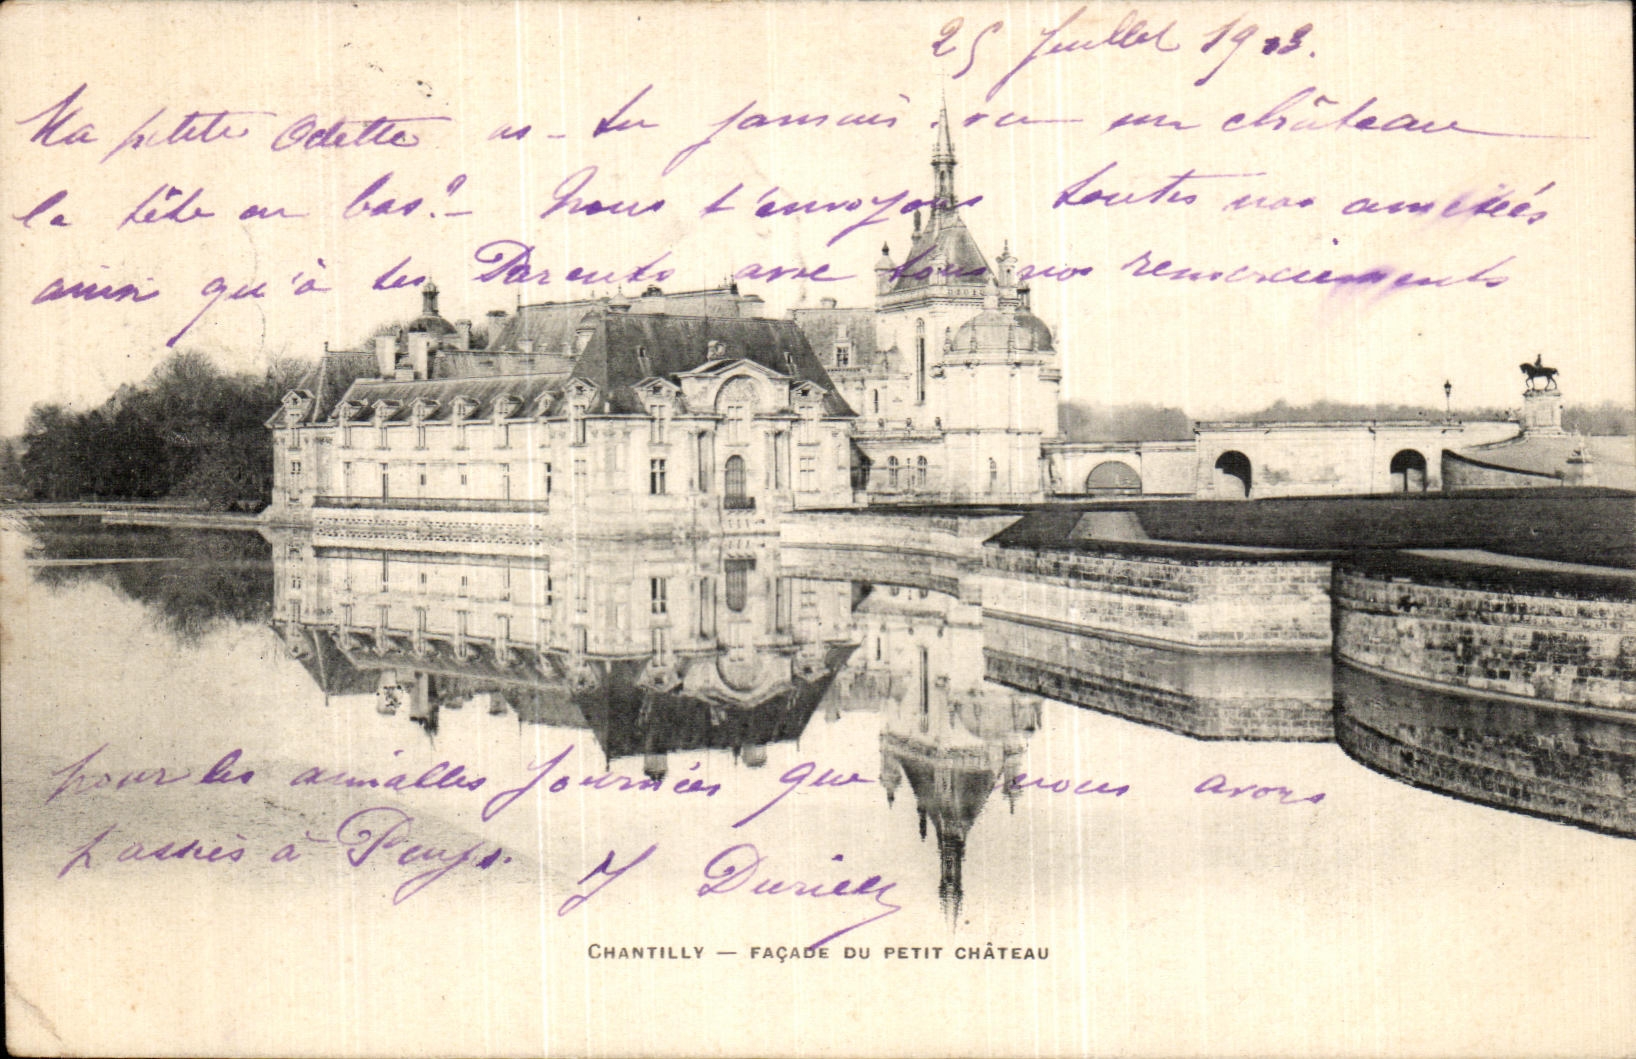 25 Juillet 1903.
Ma petite Odette as-tu jamais vu un château
la tête en bas? - Nous t'envoyons toutes nos amitiés
ainsi qu'à tes Parents avec tous nos remerciements
pour les aimables journées que nous avons
passées à
J
CHANTILLY — FAÇADE DU PETIT CHÂTEAU